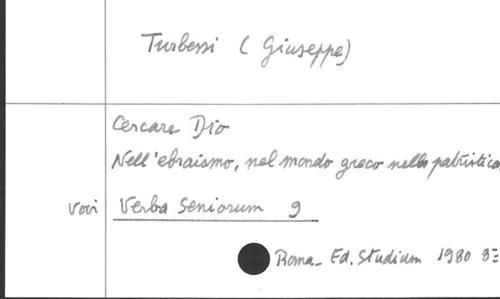 Turbessi (Giuseppe)
Cercare Dio
Nell'ebraismo, nel mondo greco nella patristica
vovi Verba Seniorum 9
Roma_ Ed. Studium 1980 8=